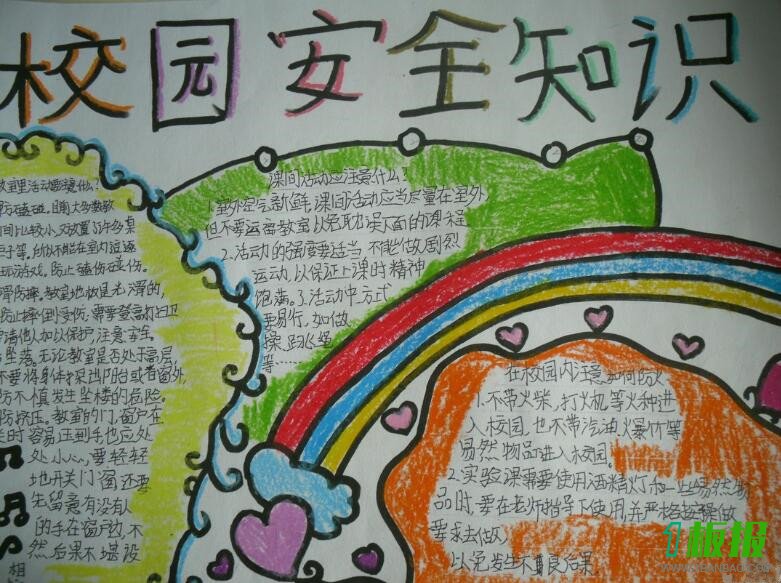 校园安全知识
教室里活动要注意什么？
防磕碰。目前大多数教
间比较小，又放置了许多桌
子等，所以不能在室内追逐
玩游戏，防止磕伤碰伤。
滑防摔。教室地板是光滑的，
防止摔倒受伤，需要登高打扫卫
请他人加以保护，注意安全。
坠落。无论教室是否处于高层，
不要将身体探出阳台或者窗外，
防不慎发生坠楼的危险。
防挤压。教室的门、窗户在
时容易压到手也应处
处小心，要轻轻
地开关门窗还要
先留意有没有人
的手在窗户边，不
然后果不堪设
相
课间活动应注意什么？
1.室外空气新鲜，课间活动应当尽量在室外
但不要远离教室以免耽误下面的课程
2.活动的强度要适当，不能做剧烈
运动，以保证上课时精神
饱满。3.活动中方式
要易行，如做
操、跳绳
等……
在校园内注意如何防火
1.不带火柴，打火机等火种进
入校园，也不带汽油火爆竹等
易然物品进入校园。
2.实验课需要使用酒精灯和一些易然物
品时，要在老师指导下使用，并严格按操做
要求去做，
以免发生不良后果
1板报
WWW.1BANBAO.COM